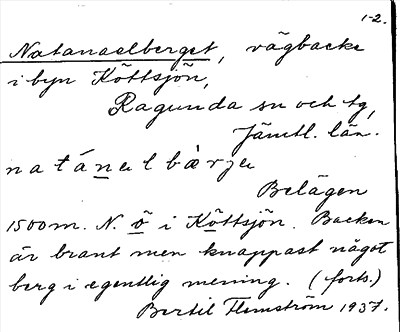 1-2.
Natanaelberget, vägbacke
i byn Köttsjön,
Ragunda sn och tg,
Jämtl. län.
natánal bàrje
Belägen
1500m. N. ö i Köttsjön. Backen
är brant men knappast något
berg i egentlig mening. (forts.)
Bertil Flemström 1937.